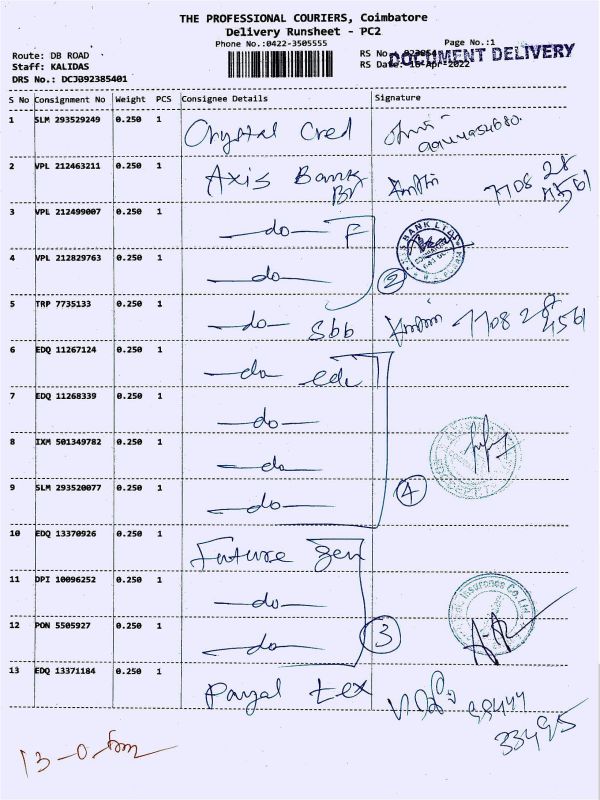 THE PROFESSIONAL COURIERS, Coimbatore
Delivery Runsheet - PC2
Phone No.:0422-3505555
Page No.:1
Route: DB ROAD
RS No
DOCUMENT DELIVERY
Staff: KALIDAS
RS Date: 16-Apr-2022
DRS No.: DCJB92385401
S No Consignment No Weight PCS Consignee Details Signature
1 SLM 293529249 0.250 1 Crystal Cred
2 VPL 212463211 0.250 1 Axis Bank 7708 28 4561
3 VPL 212499007 0.250 1 —do— F
4 VPL 212829763 0.250 1 —do— 2
5 TRP 7735133 0.250 1 —do— Sbb 7708 28 4561
6 EDQ 11267124 0.250 1 —do— edc
7 EDQ 11268339 0.250 1 —do—
8 IXM 501349782 0.250 1 —do—
9 SLM 293520077 0.250 1 —do— 4
10 EDQ 13370926 0.250 1 Future Gen
11 DPI 10096252 0.250 1 —do—
Insurance Co. Ltd.
12 PON 5505927 0.250 1 —do— 3
13 EDQ 13371184 0.250 1 Payal tex
33495